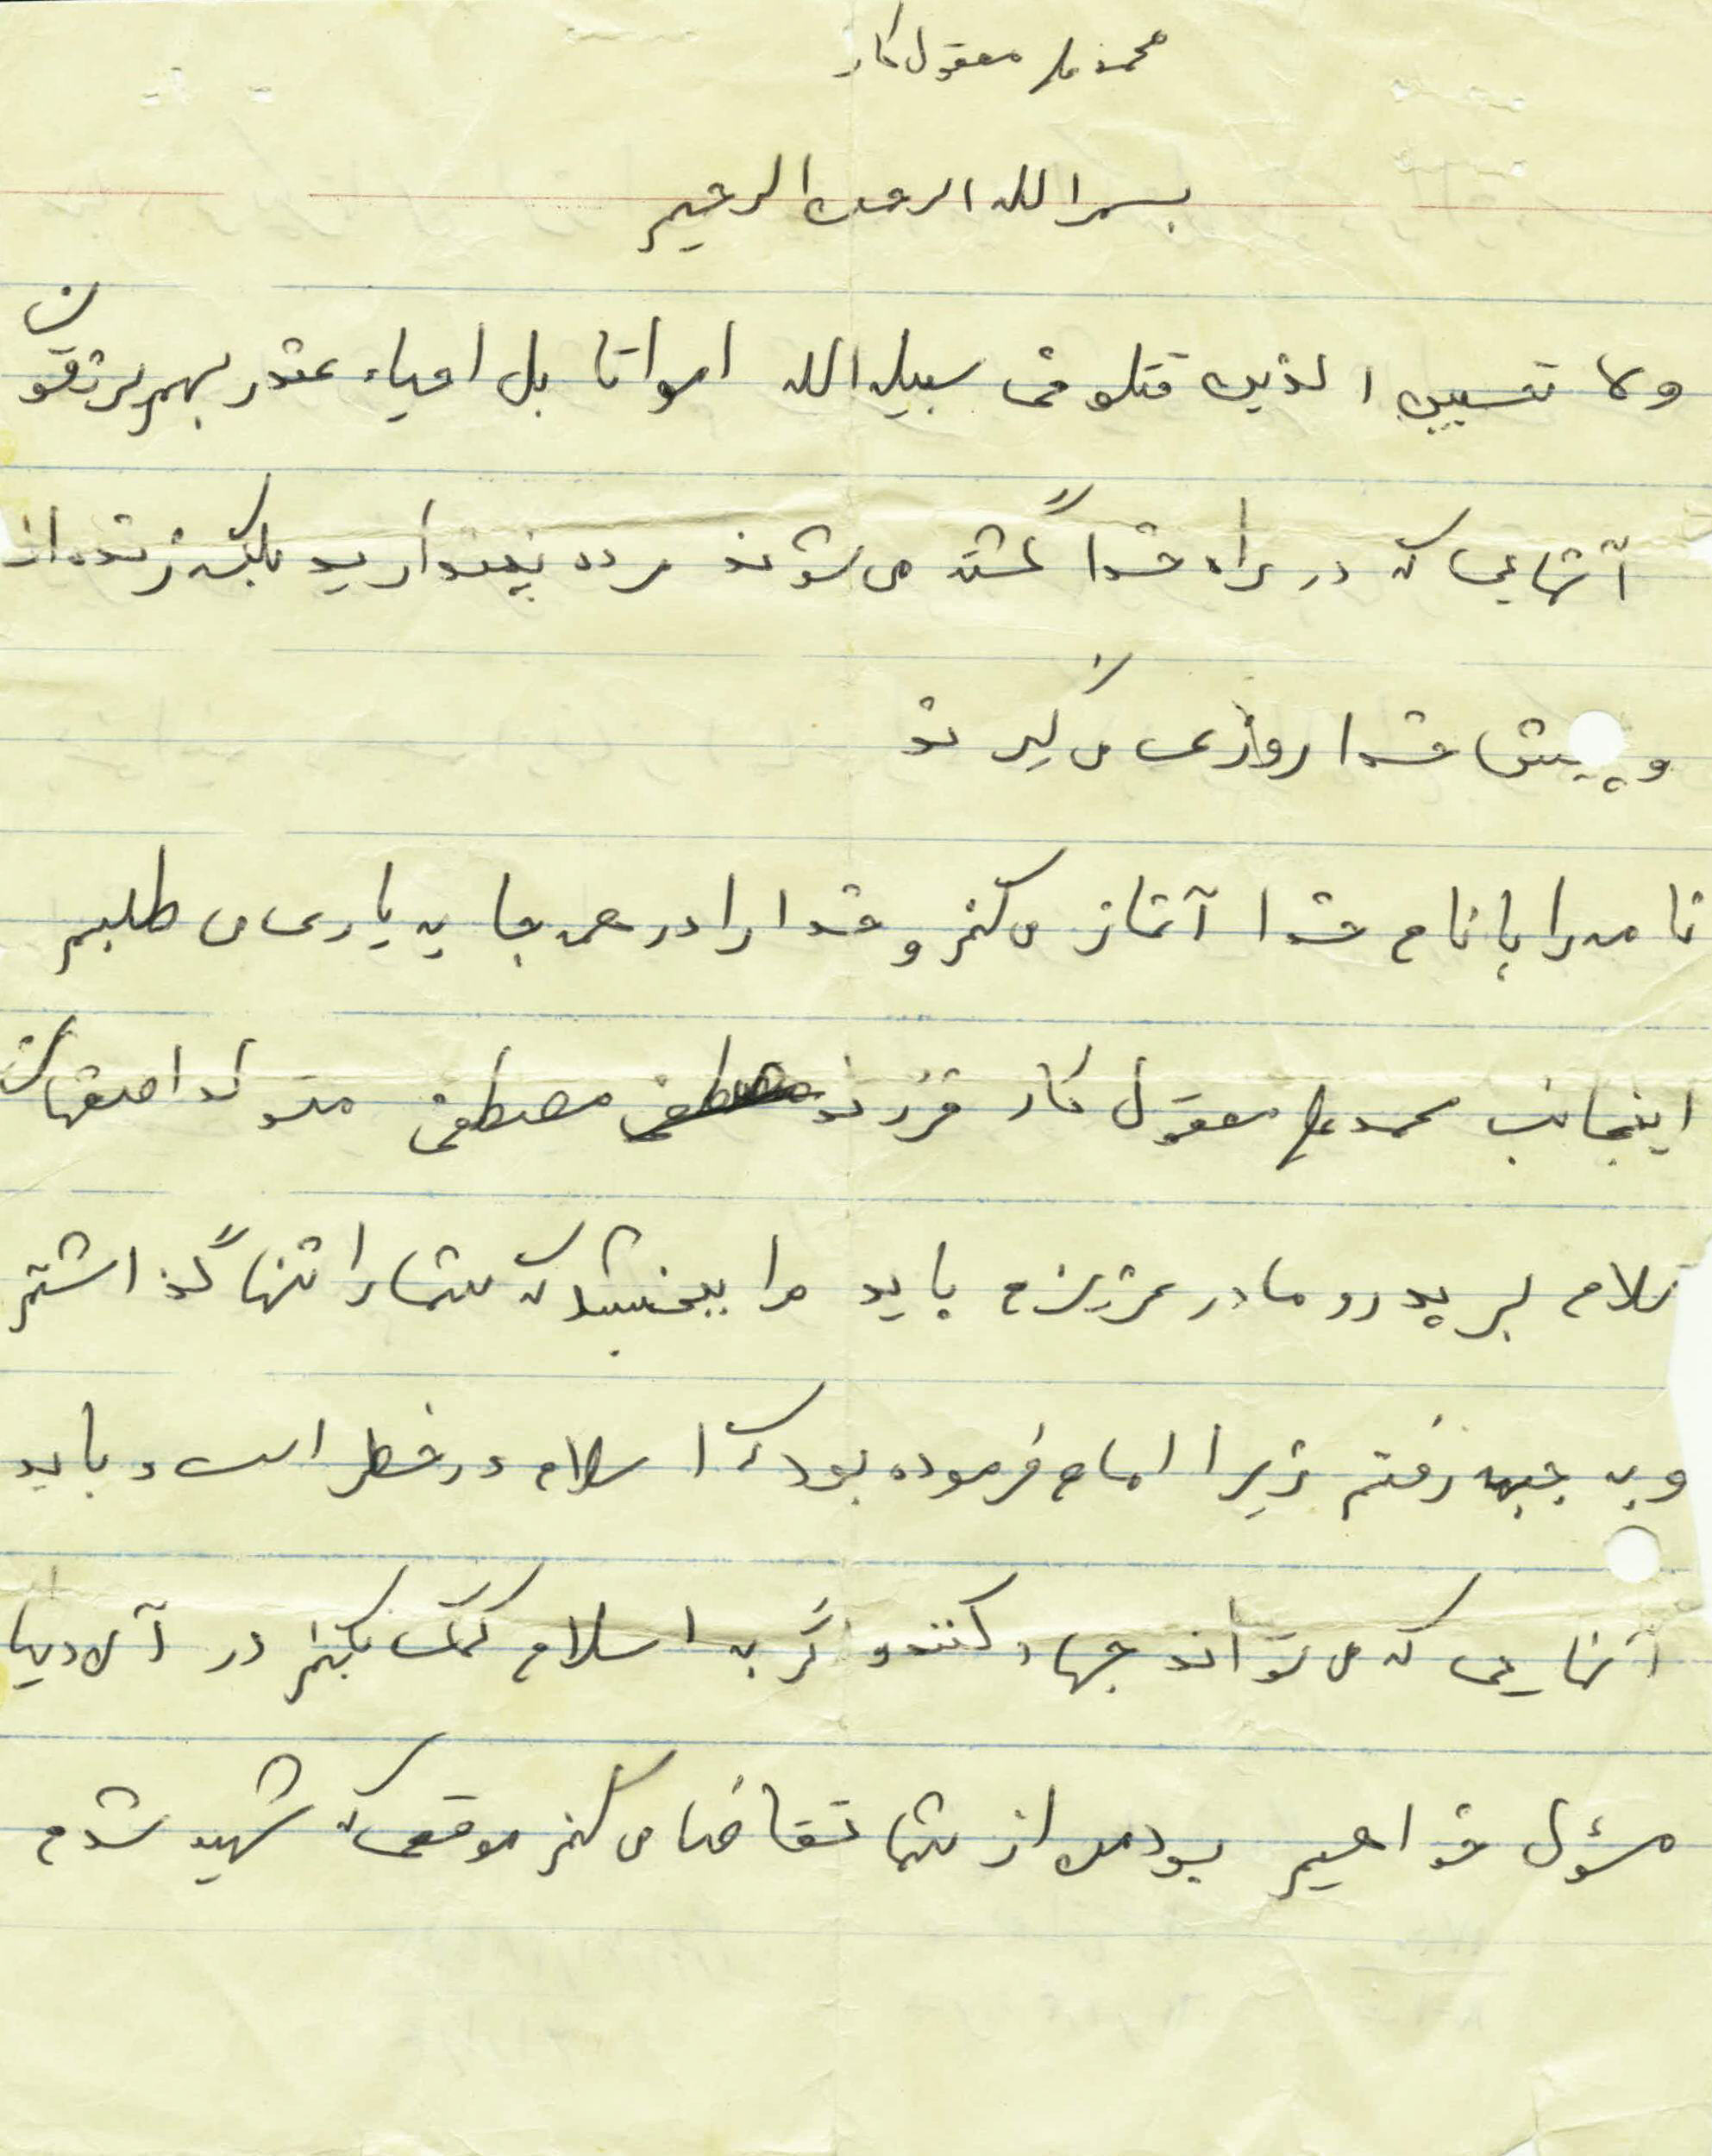 محمد علی معقول کار
بسم الله الرحمن الرحیم
ولا تحسبن الذین قتلو فی سبیل الله امواتا بل احیاء عندر بهم یرزقون
آنهایی که در راه خدا کشته می شوند مرده نپندارید بلکه زنده اند
و پیش خدا روزی می گیرند
نامه را با نام خدا آغاز می کنم و خدا را در همه جا به یاری می طلبم
اینجانب محمد علی معقول کار فرزند مصطفی متولد اصفهان
سلام بر پدر و مادر عزیزم باید مرا ببخشید که شما را تنها گذاشتم
و به جبهه رفتم زیرا امام فرموده بود که اسلام در خطر است و باید
آنهایی که می تواند جهاد کنند و اگر به اسلام کمک نکنیم در آن دنیا
مسؤل خواهیم بود من از شما تقاضا می کنم موقعی که شهید شدم